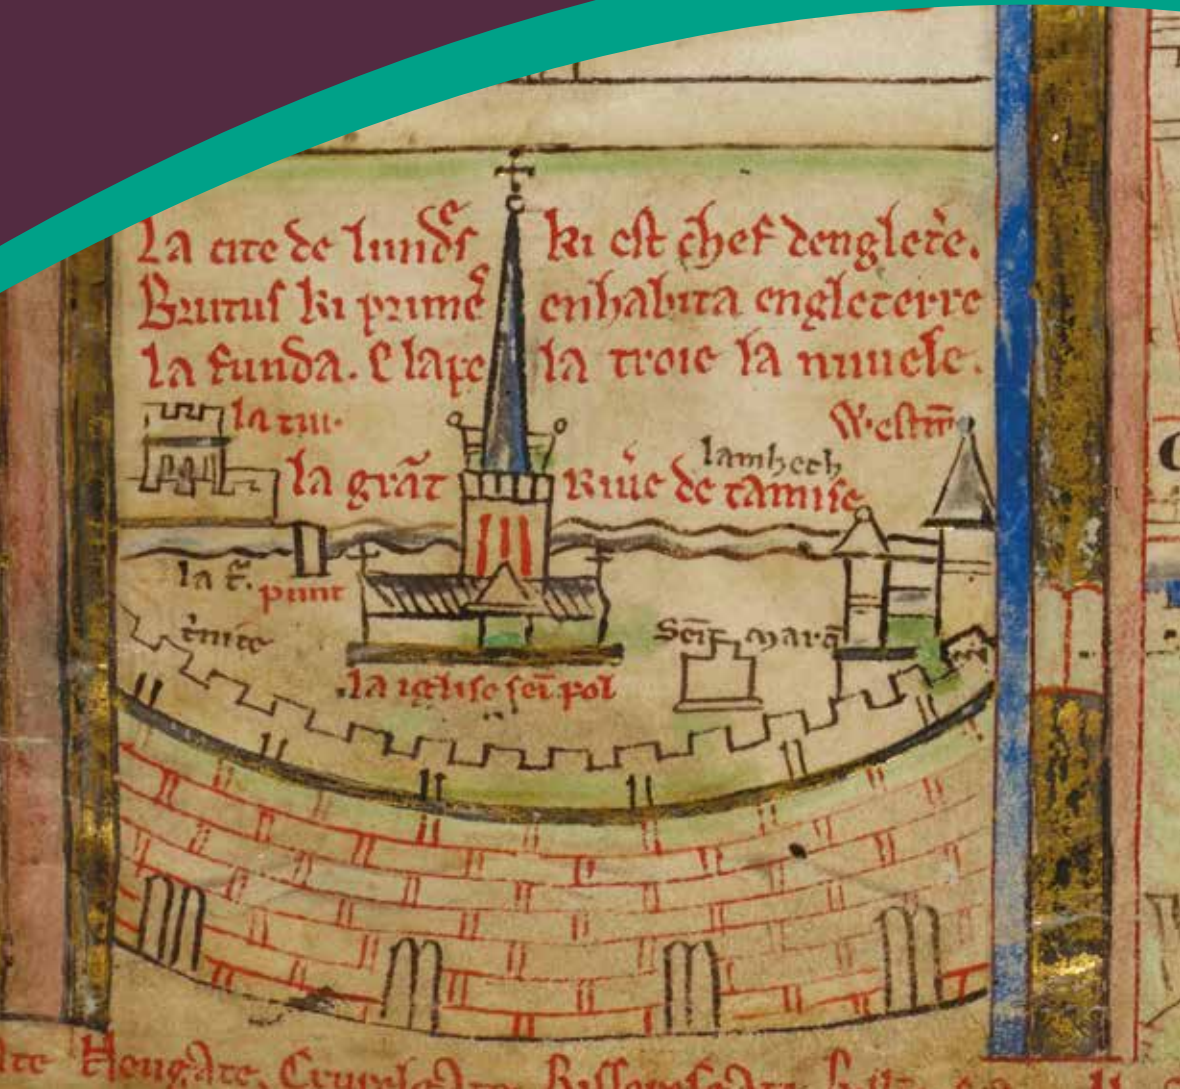 La cite de lundrs ki est chef denglet'e.
Brutus ki prime' enhabita engleterre
la funda. E lape la troie la nuuele.
la tur.
Westm̄
lambeth
la grāt Riu'e de tamise
la t̄.
punt
t'nite
Sēi marḡ
.la iglise sēi pol
Neugate, Crupelgate Bissopesgate